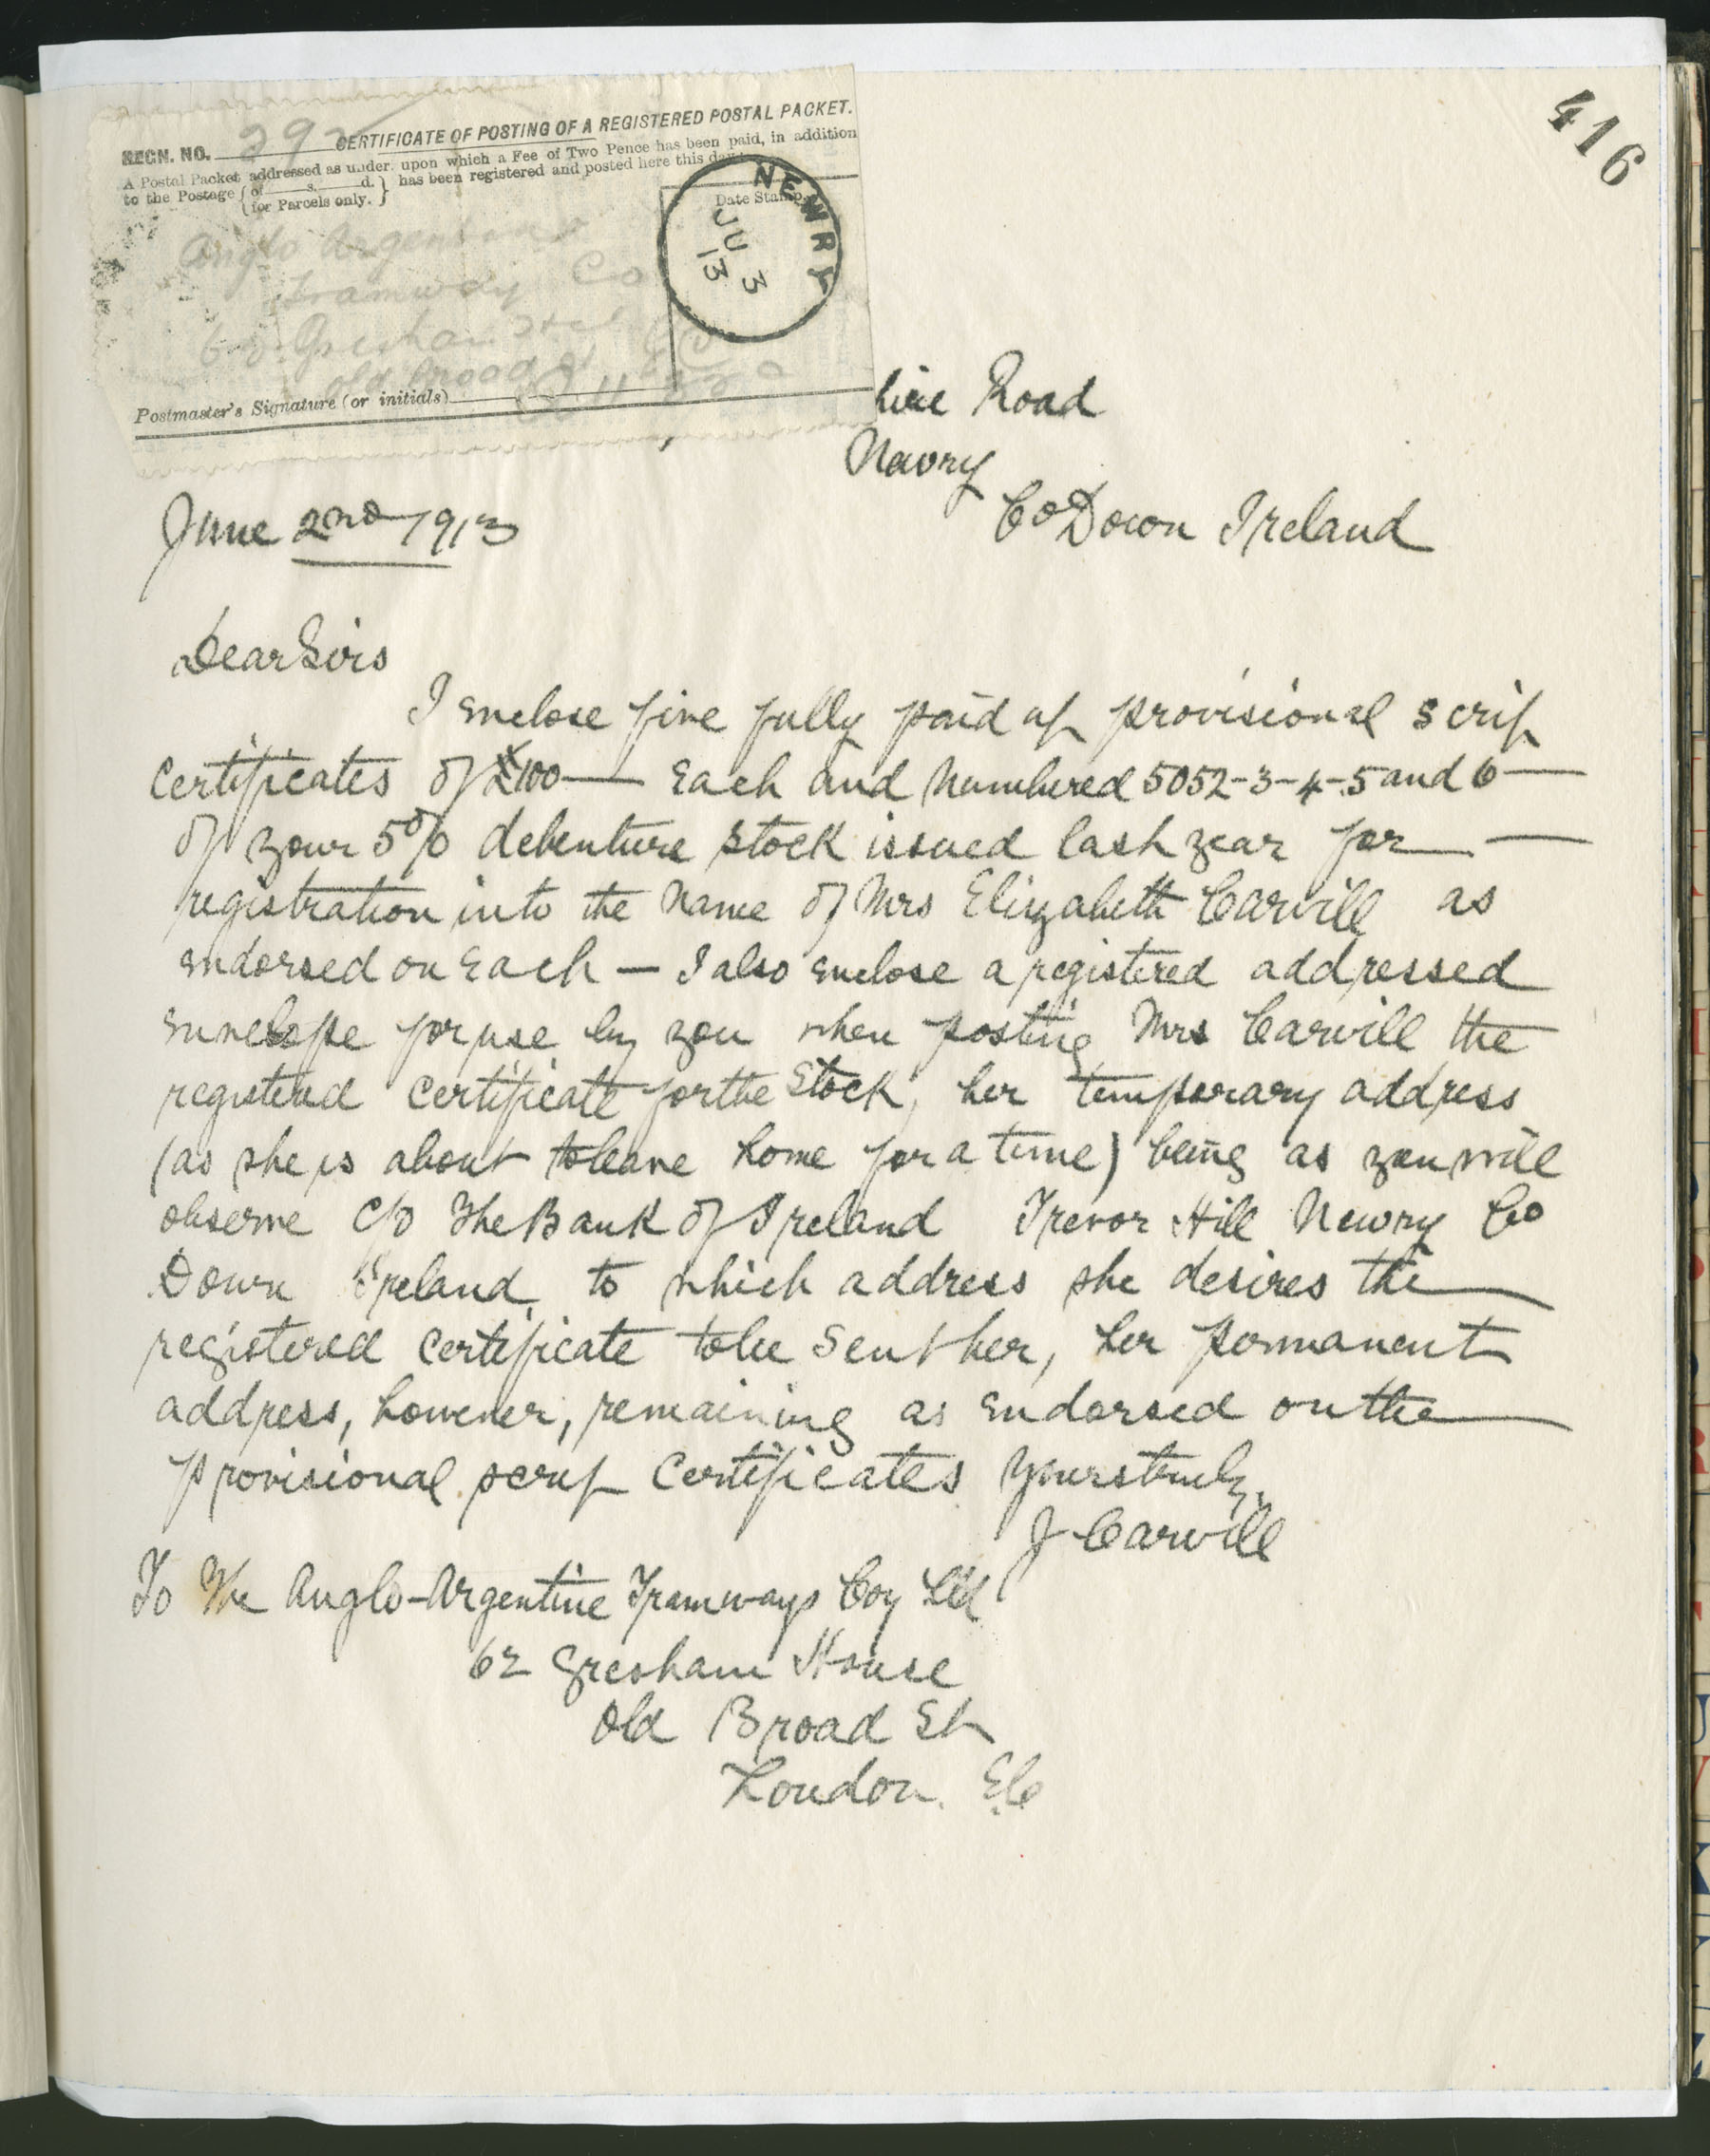 416
CERTIFICATE OF POSTING OF A REGISTERED POSTAL PACKET.
REGN. NO. 292
A Postal Packet addressed as under, upon which a Fee of Two Pence has been paid, in addition
to the Postage (of s. d. for Parcels only.) has been registered and posted here this day
Date Stamp.
NEWRY
JU 3
13
Anglo Argentine
Tramway Co
62 Gresham
Old Broad St
Postmaster's Signature (or initials)
Road
Newry
Co Down Ireland
June 2nd 1913
Dear Sirs
I enclose five fully paid up provisional scrip
certificates of £100— Each and Numbered 5052-3-4-5 and 6—
of your 5% debenture stock issued last year for —
registration into the Name of Mrs Elizabeth Carvill as
endorsed on Each — I also enclose a registered addressed
envelope for use by you when posting Mrs Carvill the
registered certificate for the Stock, her temporary address
(as she is about to leave home for a time) being as you will
observe c/o The Bank of Ireland Trevor Hill Newry Co
Down Ireland, to which address she desires the
registered certificate to be Sent her, her permanent
address, however, remaining as Endorsed on the
provisional scrip Certificates Yours truly,
J Carvill
To The Anglo-Argentine Tramways Coy Ltd
62 Gresham House
Old Broad St
London. E.C